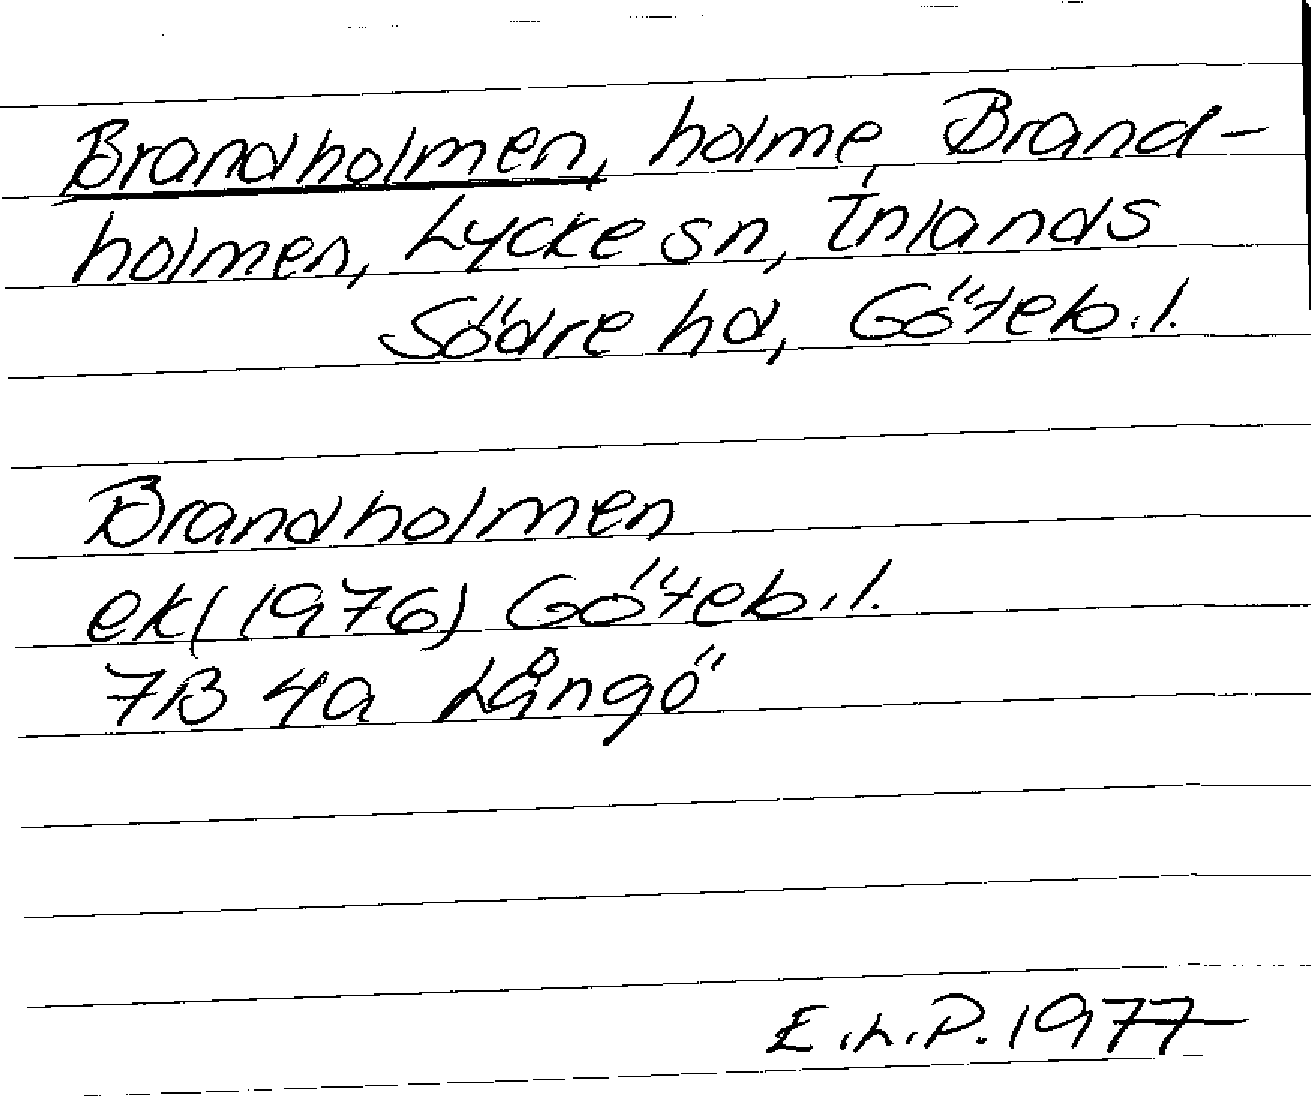 Brandholmen, holme Brand-
holmen, Lycke sn, Inlands
Södre hd, Göteb.l.
Brandholmen
ek(1976) Göteb.l.
7B 4a Långö
E.L.P. 1977